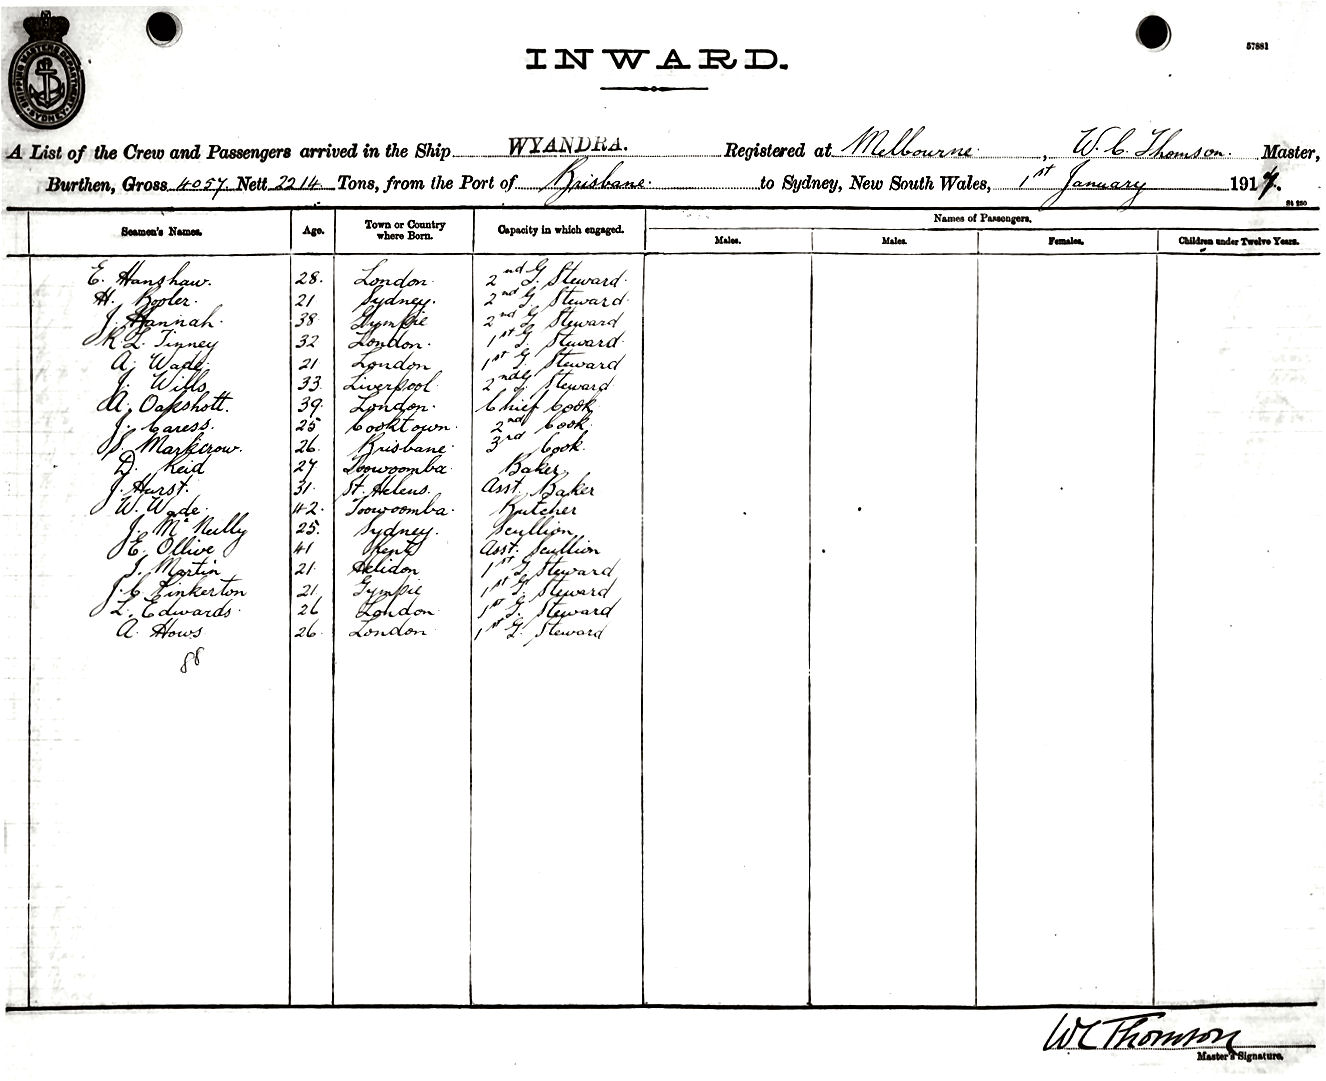 SHIPPING MASTERS DEPARTMENT SYDNEY
57881
INWARD.
A List of the Crew and Passengers arrived in the Ship WYANDRA. Registered at Melbourne, W. C. Thomson. Master,
Burthen, Gross 4057 Nett 2214 Tons, from the Port of Brisbane. to Sydney, New South Wales, 1st January 1914.
Seamen's Names. Age. Town or Country where Born. Capacity in which engaged. Names of Passengers.
Males. Males. Females. Children under Twelve Years.
E. Hanshaw. 28. London. 2nd G. Steward.
H. 21 Sydney. 2nd G. Steward.
J. Hannah. 38 Gympie 2nd G. Steward
K. L. Tinney 32 London. 1st G. Steward.
A. Wade 21 London 1st G. Steward
J. Wills 33 Liverpool 2nd G. Steward
A. Oakshott. 39. London. Chief Cook
J. Caress. 25 Cooktown. 2nd Cook.
S. Markcrow. 26. Brisbane. 3rd Cook.
D. Reid 27 Toowoomba. Baker.
J. Hurst. 31. St. Helens. Asst. Baker
W. Wade. 42. Toowoomba. Butcher
J. McNeilly 25. Sydney. Scullion
E. Ollive 41 Kent Asst. Scullion
J. Martin 21. Helidon 1st G. Steward
J. C. Pinkerton 21. Gympie 1st G. Steward
L. Edwards. 26 London 1st G. Steward
A. Hows 26. London. 1st G. Steward
88
WC Thomson
Master's Signature.